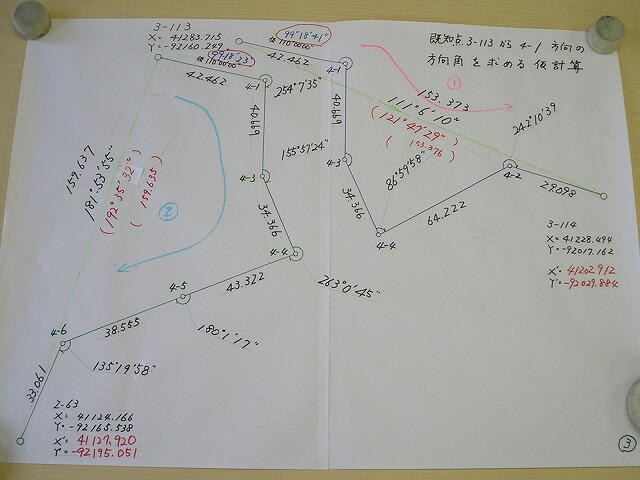 3-113
X= 41283.715
Y= -92160.249
99°18'23"
仮110°00'00"
42.462
99°18'41"
仮110°00'00"
42.462
既知点3-113から4-1方向の
方向角を求める仮計算
①
4-1
254°7'35"
40.669
4-1
40.669
153.373
111°6'10"
(121°47'29")
(153.376)
242°10'39
159.637
181°53'55"
(192°35'32")
(159.635)
②
155°57'24"
4-3
34.366
4-3
34.366
86°59'58"
4-2
29.098
64.222
4-4
4-4
263°0'45"
3-114
X= 41228.494
Y= -92017.162
X'= 41202.912
Y'= -92029.884
43.322
4-5
180°1'17"
38.555
4-6
135°19'58"
33.061
2-63
X= 41124.166
Y= -92165.538
X'= 41127.920
Y'= -92195.051
③